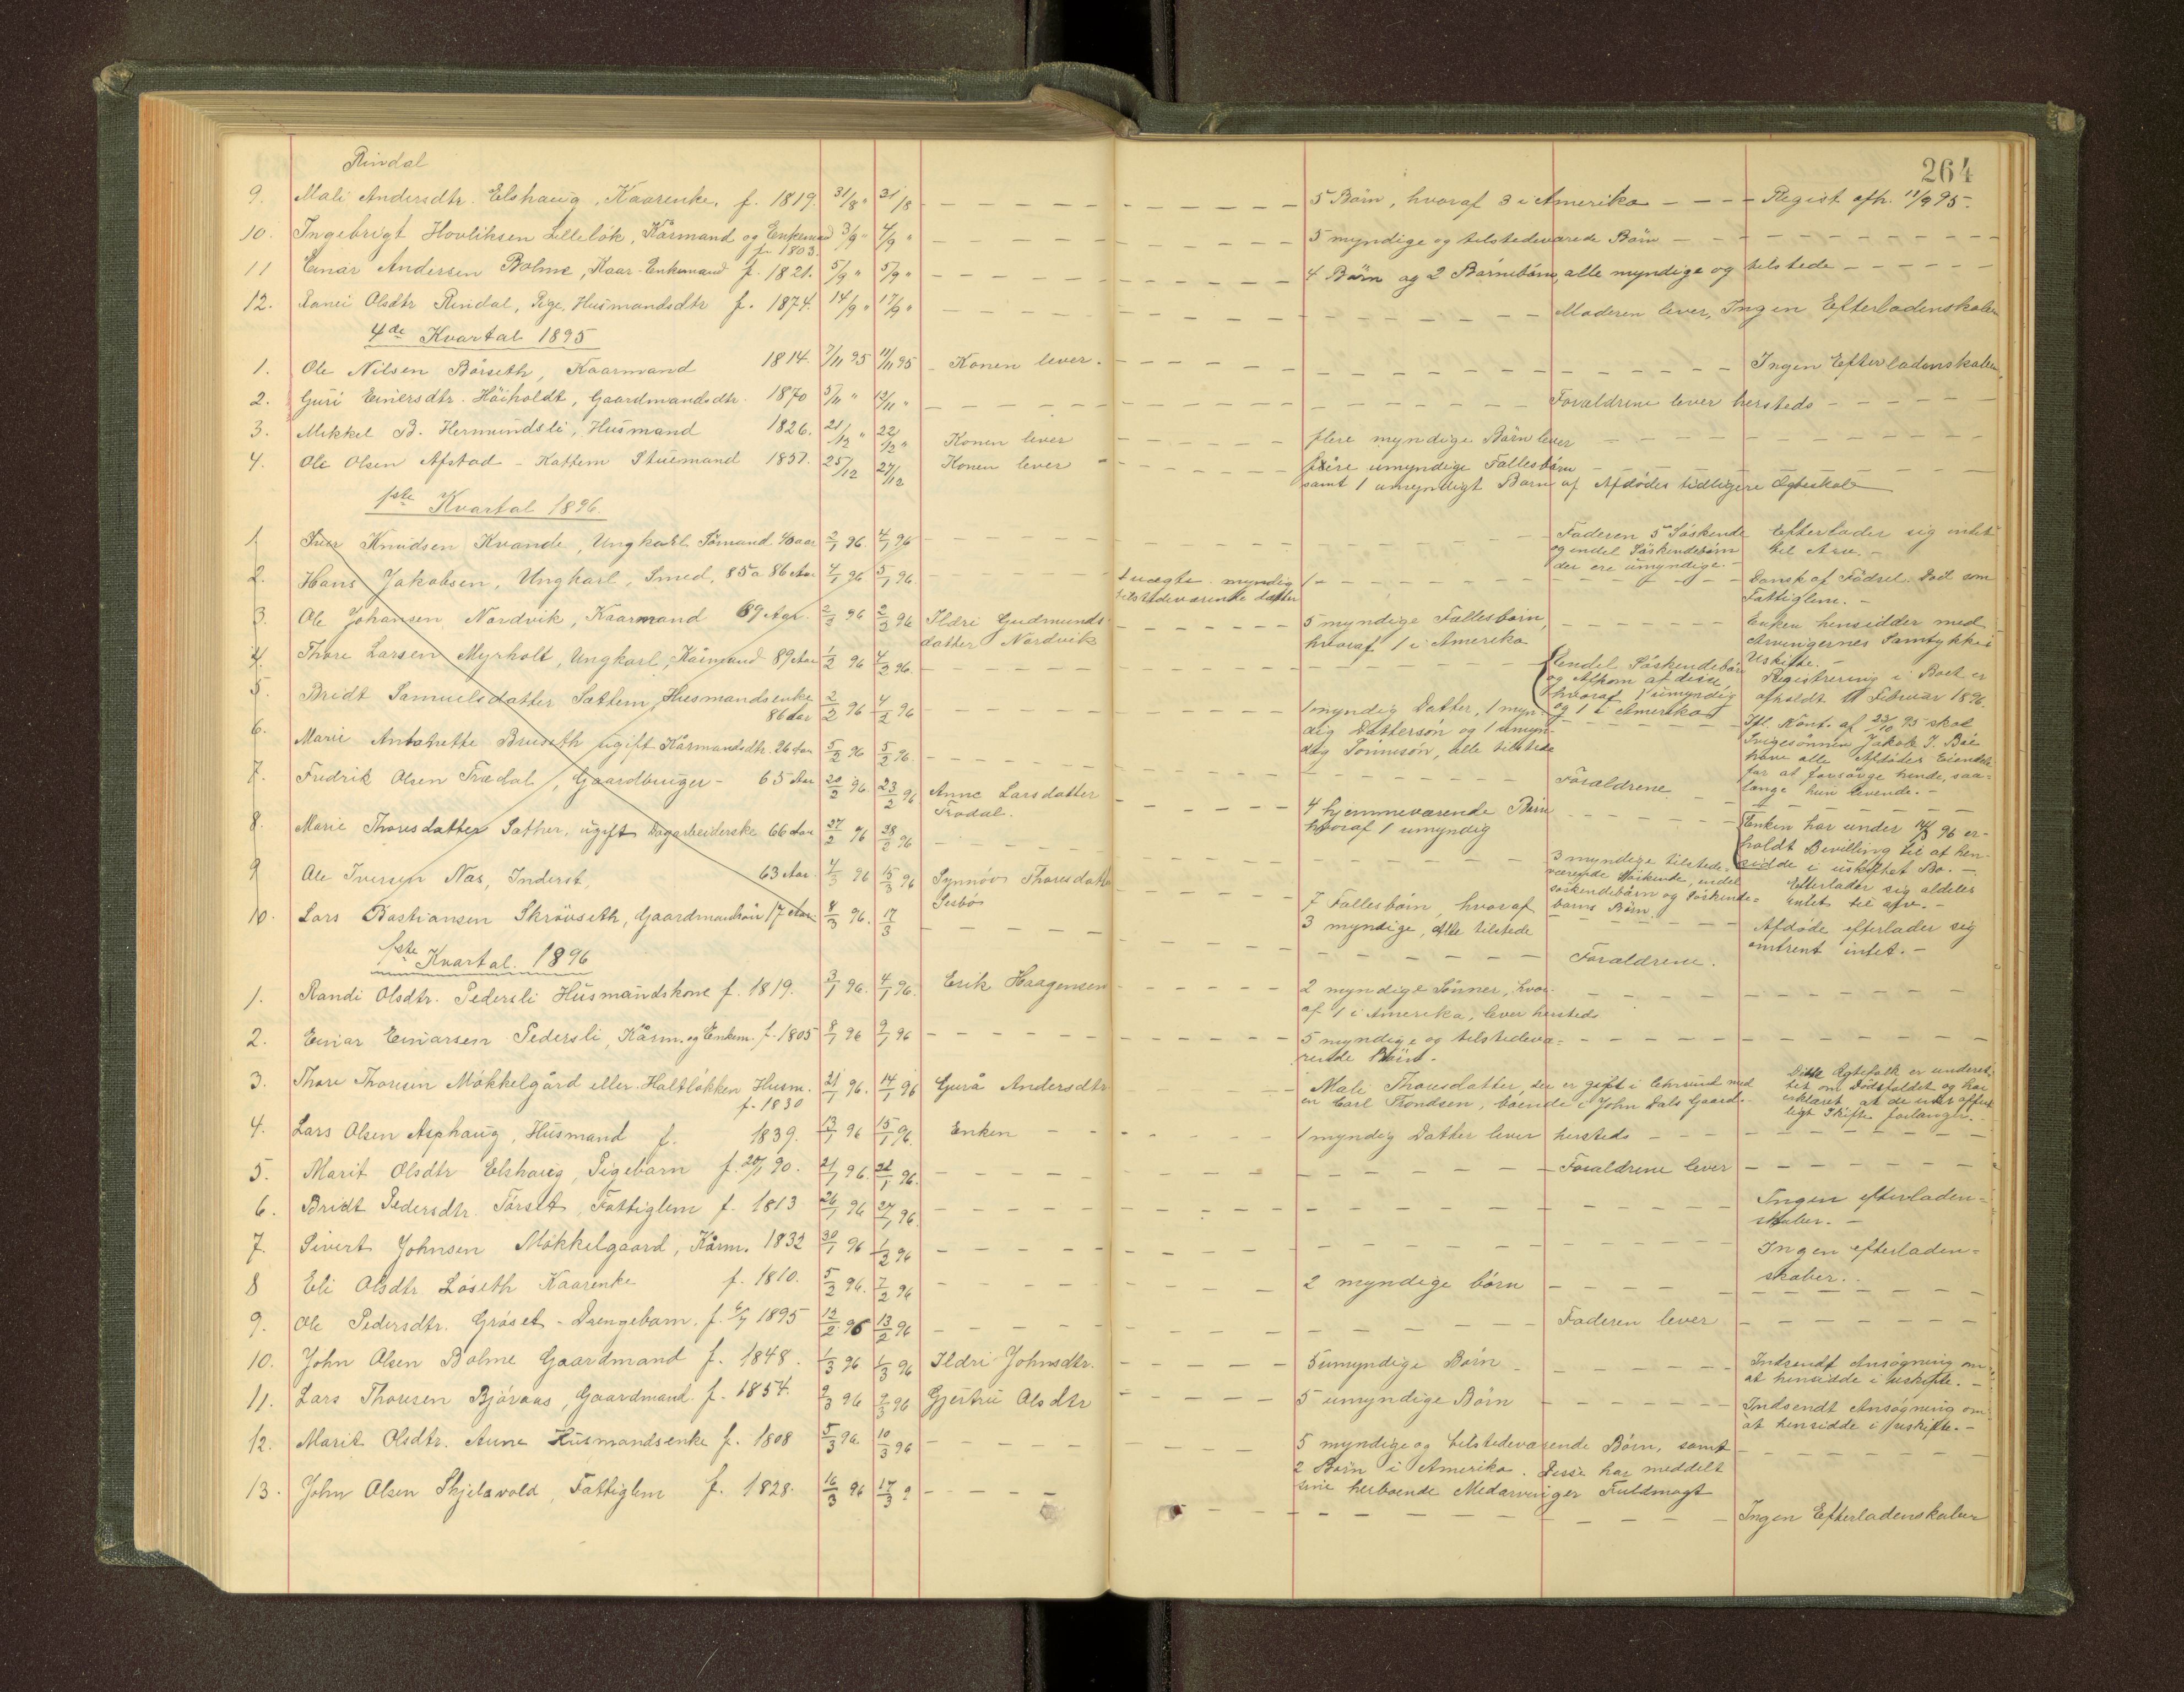 264
Rindal
9. Mali Andersdtr. Elshaug, Kaarenke, f. 1819. 31/8 " 31/8 5 Börn, hvoraf 3 i Amerika Regist afh. 11/9 95.
10. Ingebrigt Hovliksen Lillelök, Kårmand og Enkemand 3/9 " 4/9 " 5 myndige og tilstedeværede Börn
f. 1803.
11 Einar Andersen Bolme, Kaar-Enkemand f. 1821. 5/9 " 5/9 " 4 Börn og 2 Barnebörn, alle myndige og tilstede
12. Ranei Olsdtr Rindal, Pige, Husmandsdtr f. 1874. 14/9 " 17/9 " Moderen lever, Ingen Efterladenskaber
4de Kvartal 1895
1. Ole Nilsen Börseth, Kaarmand 1814. 7/11 95 11/11 95 Konen lever. Ingen Efterladenskaber
2. Guri Einersdtr. Höiholdt, Gaardmandsdtr. 1870 5/11 " 12/11 " Forældrene lever hersteds
3. Mikkel B. Hermundsli, Husmand 1826. 21/12 " 22/12 " Konen lever flere myndige Börn lever
4. Ole Olsen Afstad - Kattem Stuemand 1857. 25/12 27/12 Konen lever flere umyndige Fællesbörn
samt 1 umyndigt Barn af Afdödes tidligere Ægteskab
1ste Kvartal 1896.
1 Iver Knudsen Kvande, Ungkarl Sömand 40 aar 2/1 96. 4/1 96 Faderen 5 Söskende Efterlader sig intet
og endel Söskendebörn til Arv. -
der ere umyndige. -
2. Hans Jakobsen, Ungkarl, Smed, 85 a 86 Aar 4/1 96 5/1 96. 1 uægte myndig Dansk af Födsel. Död som
tilstedeværende datter Fattiglem. -
3. Ole Johansen Nordvik, Kaarmand 69 Aar. 2/2 96 2/2 96 Ildri Gudmunds- 5 myndige Fællesbörn, Enken hensidder med
datter Nordvik hvoraf 1 i Amerika Arvingernes Samtykke i
Uskifte. -
4. Thore Larsen Myrholt, Ungkarl, Kårmand 89 Aar 1/2 96 4/2 96. Endel Söskendebörn Registrering i Boet er
og Afkom af disse, afholdt 11 Februar 1896.
hvoraf 1 umyndig
og 1 i Amerika
5. Bridt Samuelsdatter Sættem, Husmandsenke 2/2 96 4/2 96 1 myndig Datter, 1 myn- Ifl. Kont. af 23/10 95 skal
86 Aar dig Dattersön og 1 umyn- Svigersönnen Jakob J. Böe
dig Sönnesön, alle tilstede have alle Afdödes Eiendele
for at forsörge hende, saa-
længe hun levende. -
6. Marie Antonette Bruseth ugift Kårmandsdtr. 26 Aar 5/2 96 5/2 96. Forældrene
7. Fredrik Olsen Trædal, Gaardbruger - 65 Aar 20/2 96. 23/2 96 Anne Larsdatter 4 hjemmeværende Börn Enken har under 14/3 96 er-
Trædal. hvoraf 1 umyndig holdt Bevilling til at hen-
sidde i uskiftet Bo. -
8. Marie Thoresdatter Sæther, ugift Dagarbeiderske 66 Aar 27/2 96 28/2 96 3 myndige tilstede- Efterlader sig aldeles
værende Söskende, endel intet til arv. -
söskendebörn og Söskende-
barns Börn.
9 Ole Iversen Næs, Inderst, 63 Aar. 4/3 96 15/3 96 Synnöve Thoresdatter 7 Fællesbörn, hvoraf Afdöde efterlader sig
Sesbö 3 myndige, Alle tilstede omtrent intet. -
10. Lars Bastiansen Skröuseth, Gaardmandssön 17 Aar 8/3 96. 17/3 Forældrene.
1ste Kvartal. 1896
1. Randi Olsdtr. Pedersli Husmandskone f. 1819. 3/1 96. 4/1 96. Erik Haagensen 2 myndige Sönner, hvor-
af 1 i Amerika, lever hersteds
2. Einar Einarsen Pedersli, Kårm. og Enkem. f. 1805 8/1 96 9/1 96 5 myndige og tilstedevæ-
rende Börn.
3. Thore Thoresen Mökkelgård eller Haltlökken Husm. 21/1 96. 14/1 96 Gurå Andersdtr Mali Thoresdatter, der er gift i Chrsund med Dette Ægtefolk er underet-
f. 1830 en Carl Trondsen, boende i John Dals Gaard. tet om Dödsfaldet og har
erklæret at de
ligt Skifte forlanger. -
4. Lars Olsen Asphaug, Husmand f. 1839. 13/1 96 15/1 96. Enken 1 myndig Datter lever hersteds
5. Marit Olsdtr Elshaug, Pigebarn f. 20/1 90. 21/1 96. 22/1 96. Forældrene lever
6. Bridt Pedersdtr. Törset, Fattiglem f. 1813 26/1 96 27/1 96. Ingen efterladen-
skaber. -
7. Sivert Johnsen Mökkelgaard, Kårm. 1832 30/1 96 1/2 96 Ingen efterladen-
skaber.
8 Eli Olsdtr. Löseth Kaarenke f. 1810. 5/2 96. 7/2 96 2 myndige börn
9. Ole Pedersdtr. Gröset - Drengebarn. f. 6/7 1895 12/2 96 13/2 96 Faderen lever
10. John Olsen Bolme Gaardmand f. 1848. 1/3 96 1/3 96 Ildri Johnsdtr. 5 umyndige Börn Indsendt Ansögning om
at hensidde i uskifte. -
11. Lars Thoresen Björaas, Gaardmand f. 1854. 9/3 96 9/3 96 Gjertru Olsdtr 5 umyndige Börn Indsendt Ansögning om
at hensidde i uskifte. -
12. Marit Olsdtr. Aune Husmandsenke f. 1808 5/3 96. 10/3 96 5 myndige og tilstedeværende Börn, samt
2 Börn i Amerika. Disse har meddelt
sine herboende Medarvinger Fuldmagt
13. John Olsen Skjelavold, Fattiglem f. 1828. 16/3 96 17/3 " Ingen Efterladenskaber